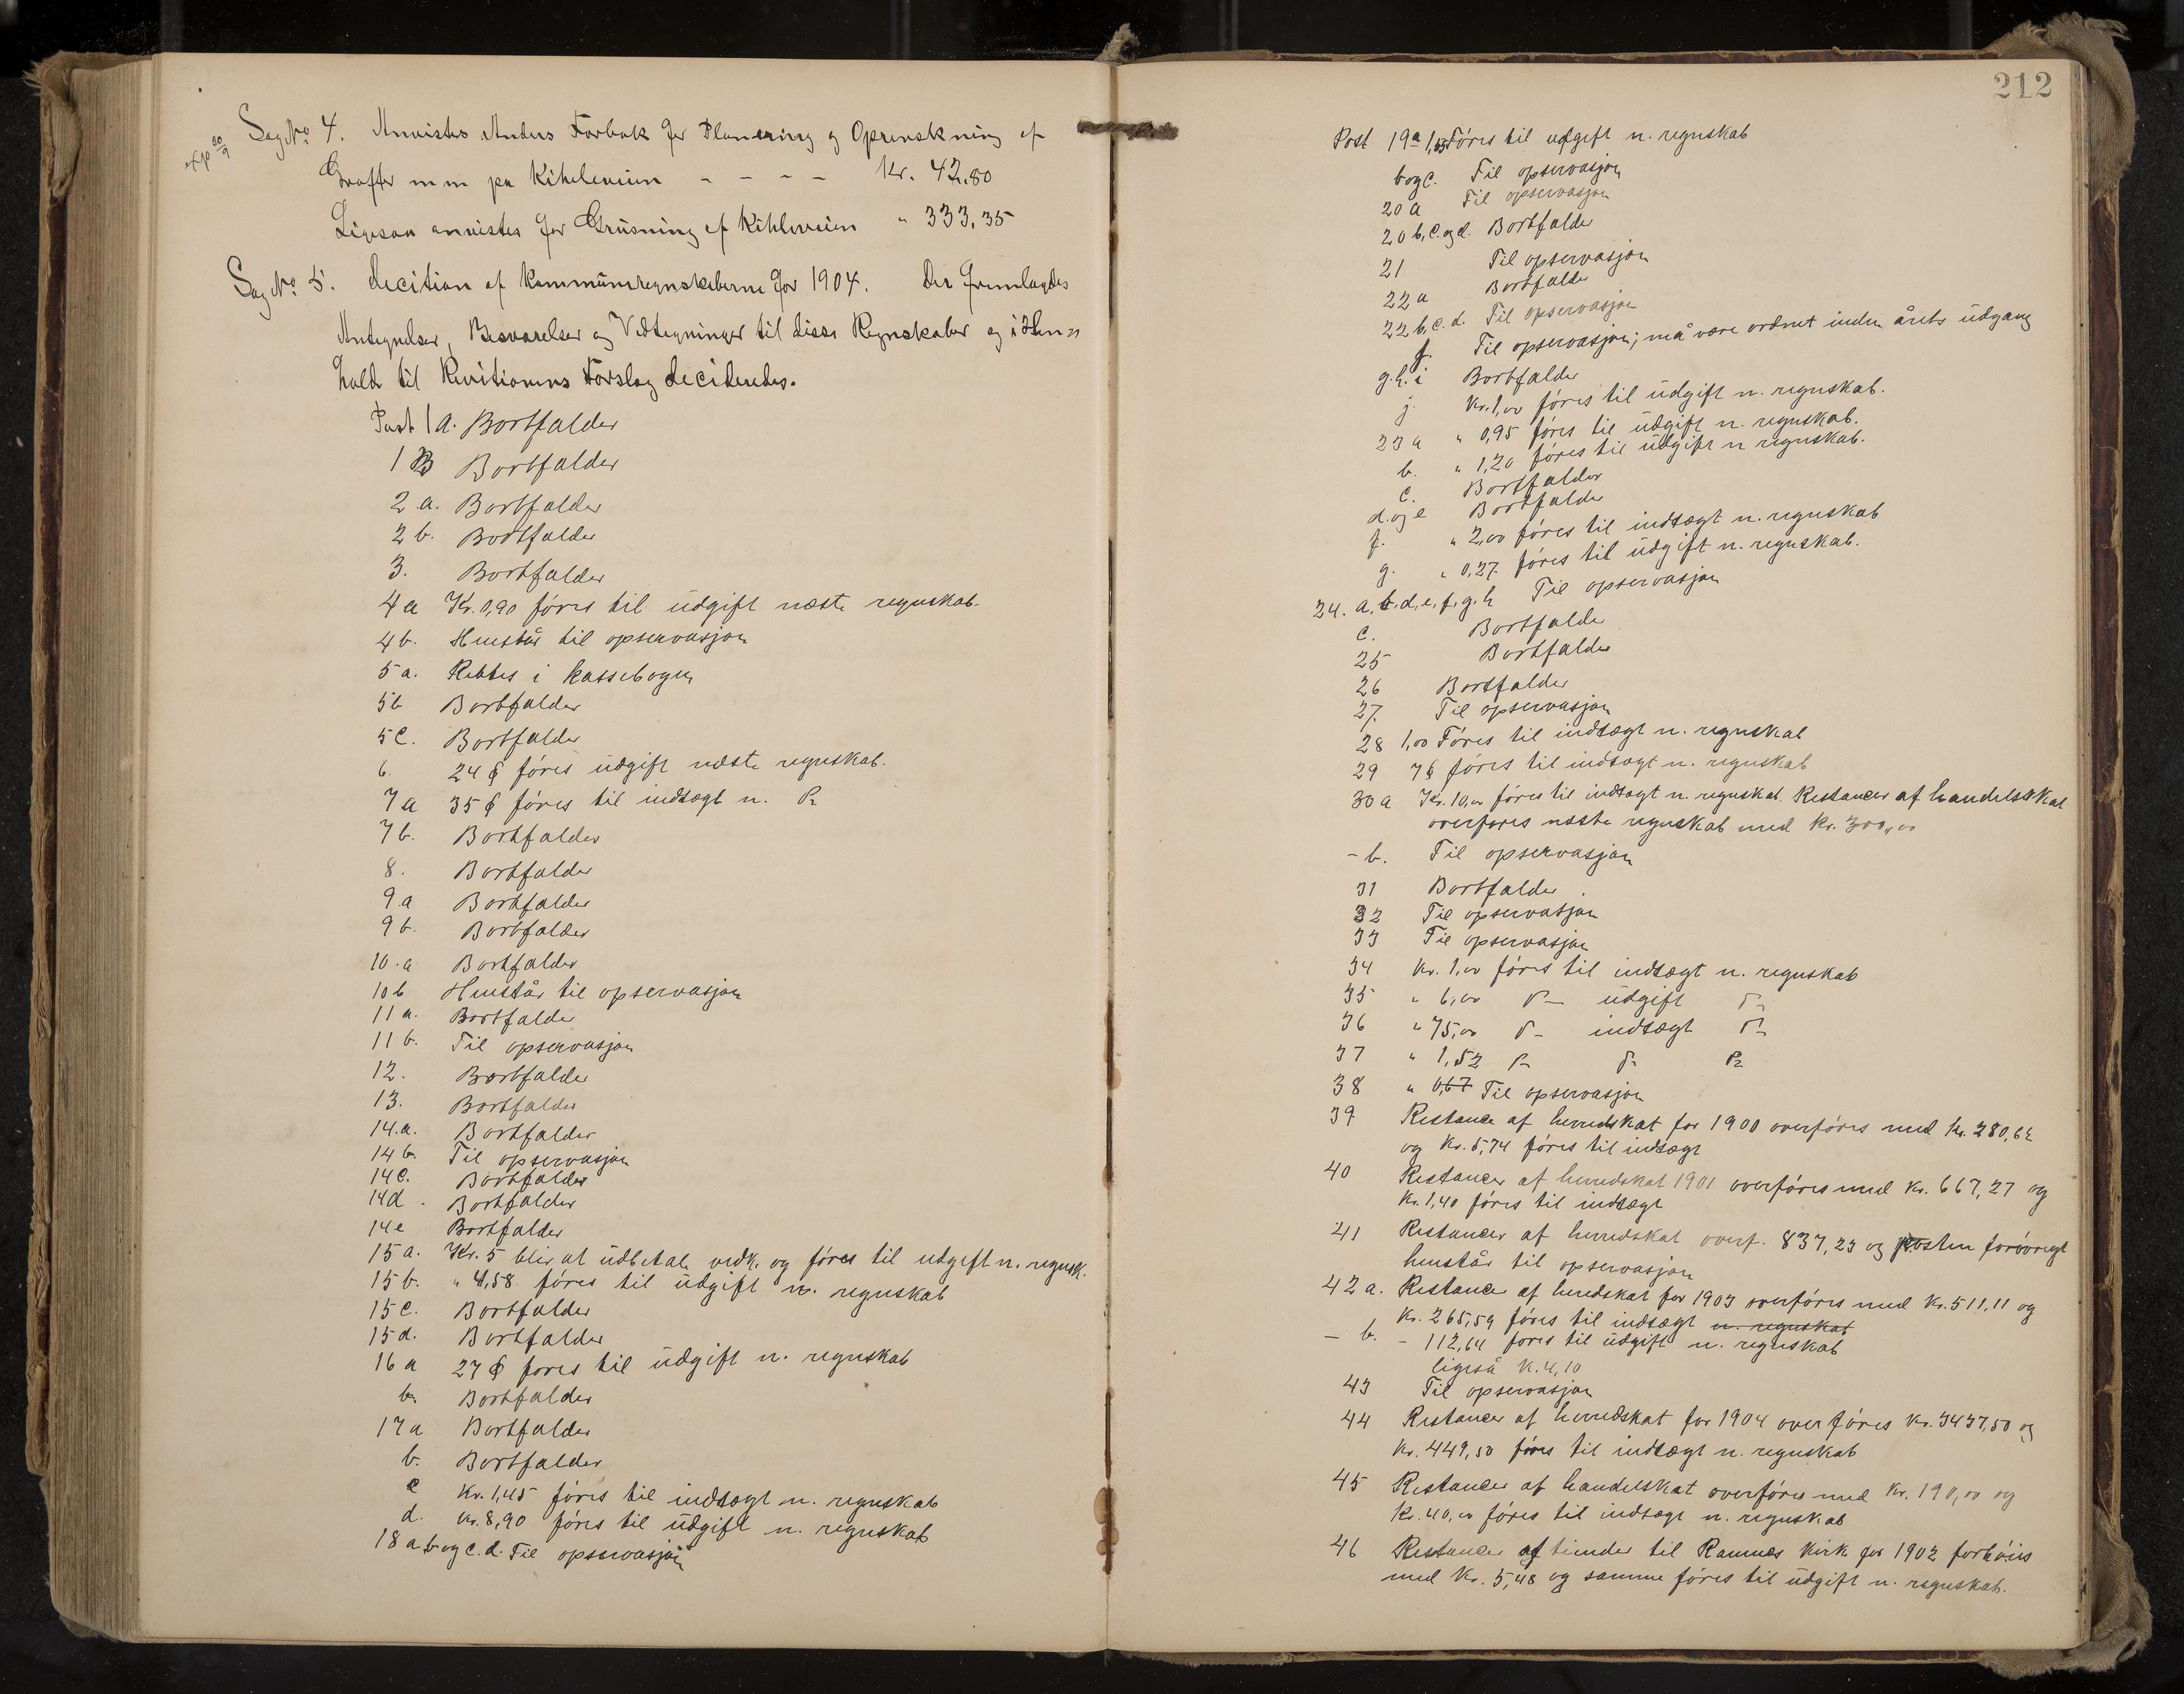 exp 20/9
Sag No 4. Anvistes Anders Forbak for Planering og Oprenskning af
Grøfter m m på Kihleveien - - - - Kr. 42,80
Ligesaa anvistes for Grusning af Kihleveien " 333,35
Sag No 5. Decition af Kommuneregnskaberne for 1904. Der fremlagdes
Antegnelser, Besvarelser og Vedtegninger til disse Regnskaber og i Hen=
hold til Revitionens Forslag decideredes.
Post 1 a. Bortfalder
1 B Bortfalder
2 a. Bortfalder
2 b. Bortfalder
3. Bortfalder
4 a Kr. 0,90 føres til udgift næste regnskab.
4 b. Henstår til opservasjon
5 a. Rettes i kassebogen
5 b Bortfalder
5 c. Bortfalder
6. 24 ø føres udgift næste regnskab.
7 a 35 ø føres til indtægt n. do
7 b. Bortfalder
8. Bortfalder
9 a Bortfalder
9 b. Bortfalder
10. a Bortfalder
10 b Henstår til opservasjon
11 a. Bortfalder
11 b. Til opservasjon
12. Bortfalder
13. Bortfalder
14. a. Bortfalder
14 b. Til opservasjon
14 c. Bortfalder
14 d. Bortfalder
14 e Bortfalder
15 a. Kr. 5 blir at udbetale vedk. og føres til udgift n. regnsk.
15 b. " 4,58 føres til udgift n. regnskab
15 c. Bortfalder
15 d. Bortfalder
16 a 27 ø føres til udgift n. regnskab
b. Bortfalder
17 a Bortfalder
b. Bortfalder
c Kr. 1,45 føres til indtægt n. regnskab
d. Kr. 8,90 føres til udgift n. regnskab
18 a b og c. d. Til opservasjon
212
Post 19 a 1,33 Føres til udgift n. regnskab
b og c. Til opservasjon
20 a Til opservasjon
20 b, c. og d. Bortfalder
21 Til opservasjon
22 a Bortfalder
22 b, c. d. Til opservasjon
f. Til opservasjon; må være ordnet inden årets udgang
g. h. i Bortfalder
j. Kr. 1,00 føres til udgift n. regnskab.
23 a " 0,95 føres til udgift n. regnskab.
b. " 1,20 føres til udgift n regnskab.
c. Bortfalder
d. og e Bortfalder
f. " 2,00 føres til indtægt n. regnskab
g. " 0,27 føres til udgift n. regnskab.
24. a, b, d, e, f, g. h Til opservasjon
c. Bortfalder
25 Bortfalder
26 Bortfalder
27. Til opservasjon
28 1,00 Føres til indtægt n. regnskab
29 7 ø føres til indtægt n. regnskab
30 a Kr. 10,00 føres til indtægt n. regnskab. Restancer af handelsskat
overføres næste regnskab med Kr. 300,00
- b. Til opservasjon
31 Bortfalder
32 Til opservasjon
33 Til opservasjon
34 Kr. 1,00 føres til indtægt n. regnskab
35 " 6,00 do udgift do
36 " 75,00 do indtægt do
37 " 1,52 do do do
38 " 0,67 Til opservasjon
39 Restance af herredskat for 1900 overføres med Kr. 280,62
og Kr. 5,74 føres til indtægt
40 Restancer af herredskat 1901 overføres med Kr. 667,27 og
Kr. 1,40 føres til indtægt
41 Restancer af herredskat overf. 837,23 og posten forøvrigt
henstår til opservasjon
42 a. Restancer af herredskat for 1903 overføres med Kr. 511,11 og
Kr. 265,59 føres til indtægt n. regnskab
- b. - 112,64 føres til udgift n. regnskab
ligeså K. 4,10
43 Til opservasjon
44 Restancer af herredskat for 1904 overføres Kr. 3437,50 og
Kr. 449,50 føres til indtægt n. regnskab
45 Restancer af handelskat overføres med Kr. 190,00 og
Kr. 40,00 føres til indtægt n. regnskab
46 Restancer af tiender til Ramnes Kirke for 1902 forhøies
med Kr. 5,48 og samme føres til udgift n. regnskab.